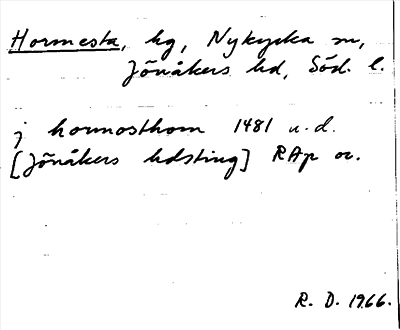 Hormesta, hg, Nykyrka sn,
Jönåkers hd, Söd. l.
j hormosthom 1481 u.d.
[Jönåkers hdsting] RAp or.
R. D. 1966.